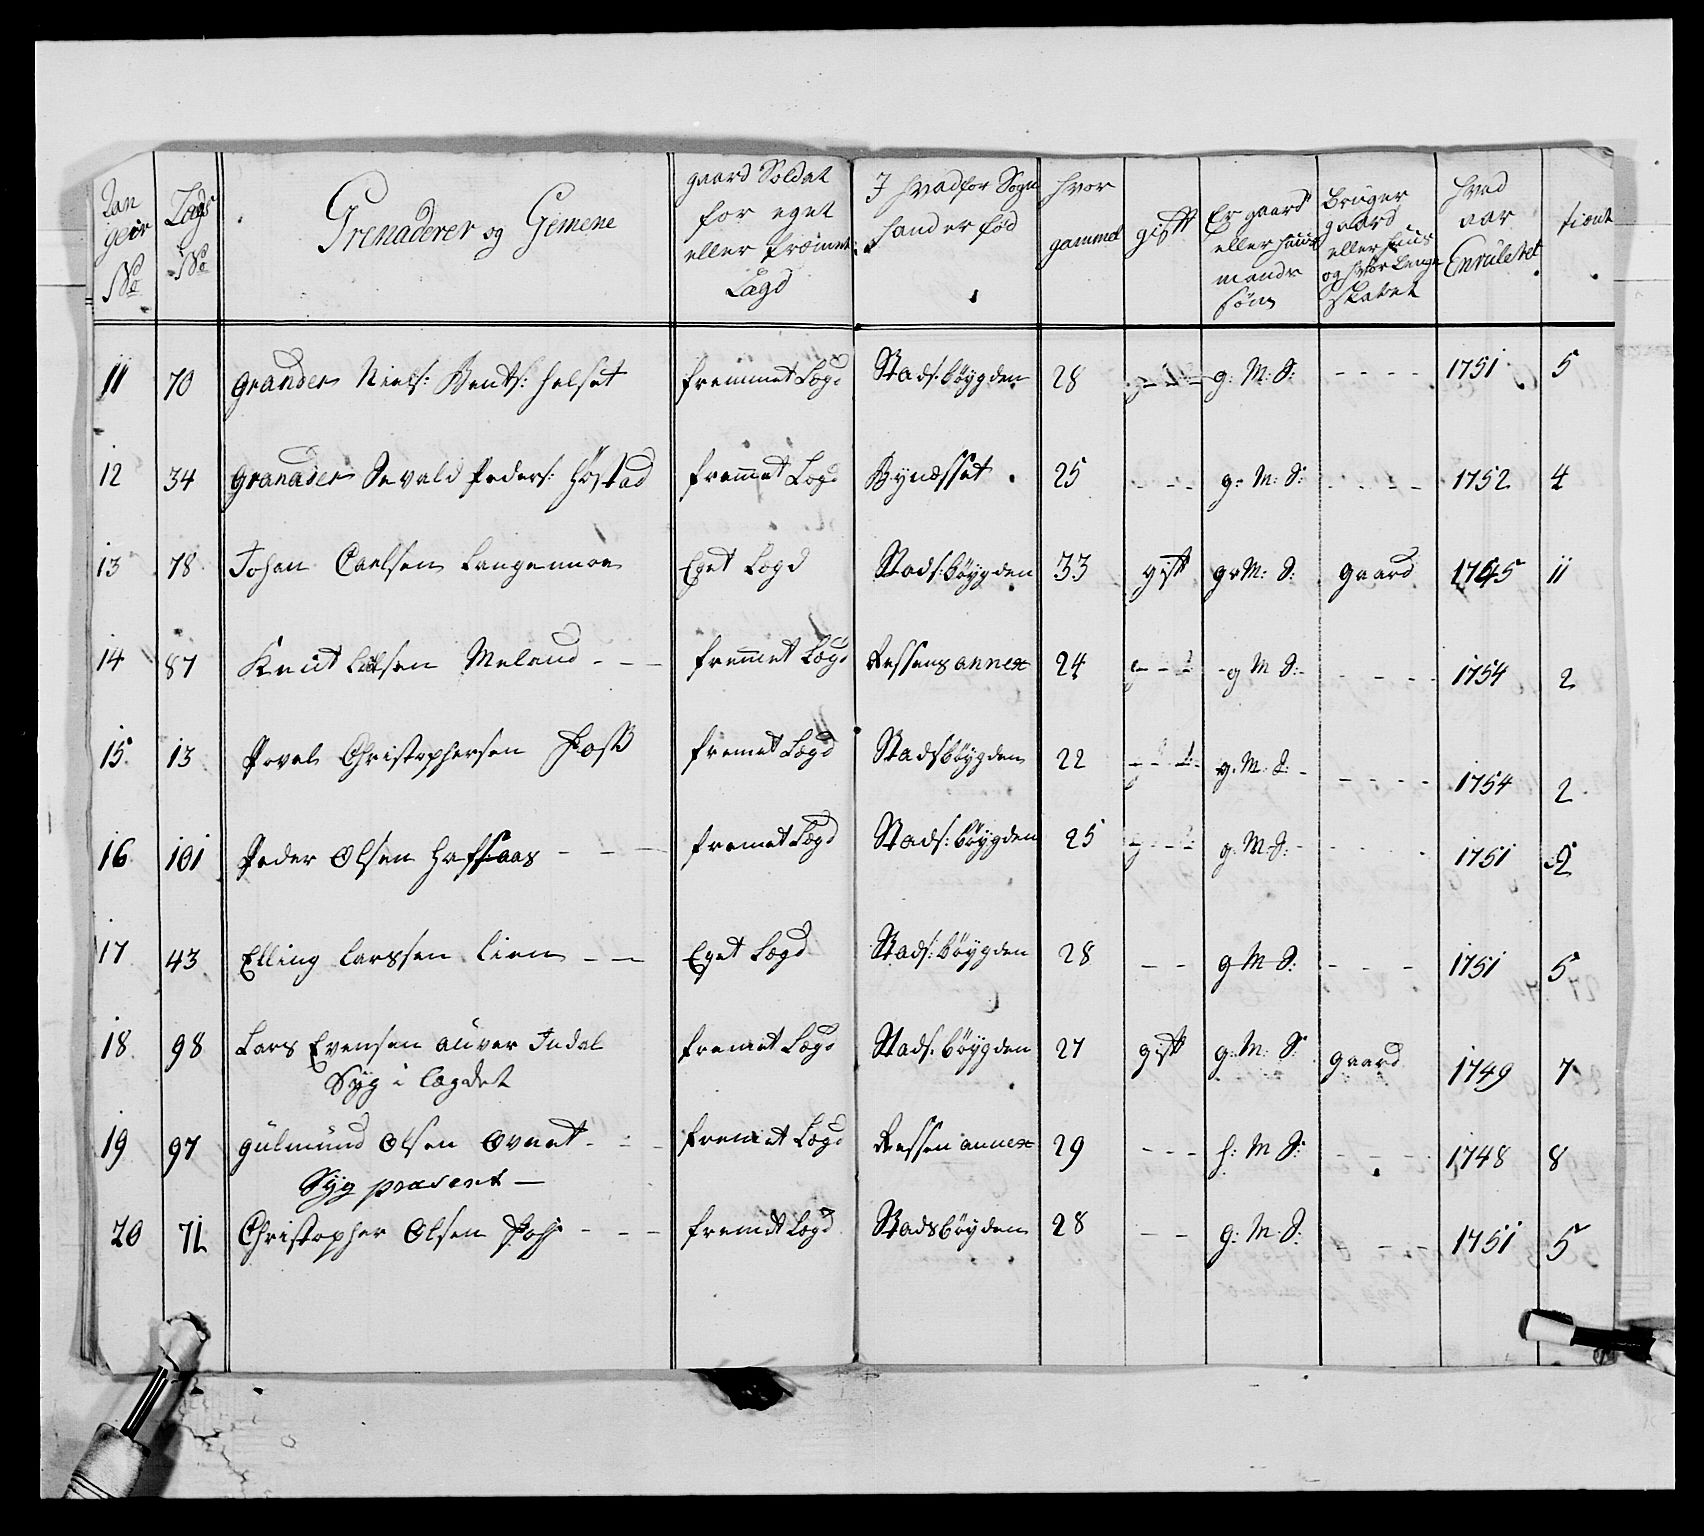 No
Lægds No
Grenaderer og Gemene
gaard Soldat for eget eller fræmmet Lægd
I hvadfor Sogn hand er fød
hvor gammel
gift
Er gaard eller huus mands søn
bruger gaard eller huus og hvor Længe skatet
hvad aar Enruleret
tient
11 70 Granader Niels: Bents: Helset fremmet Lægd Stads:bøygden 28 - - - g: M: S: - - - - 1751 5
12 34 Granader Sevald Peders: Høstad fremet Lægd Bynæsset 25 - - - g: M: S: - - - - 1752 4
13 78 Johan Carlsen Langemoe Eget Lægd Stads:bøygden 33 gift g: M: S: gaard 1745 11
14 87 Knut Olsen Meland - - - fremet Lægd Ressens annex 24 - - - g M S: - - - - 1754 2
15 13 Povel Christophersen fremet Lægd Stadsbøygden 22 - - - g. M. S: - - - - - 1754 2
16 101 Peder Olsen Hafsaas - - - fremet Lægd Stads:bøygden 25 - - - g: M: S: - - - - 1751
17 43 Elling Larssen Lien - - Eget Lægd Stads:bøygden 28 - - g M S: - - - 1751 5
18 98 Lars Evensen auver Indal fremet Lægd Stads:bøygden 27 gift g: M: S: gaard 1749 7
Syg i Lægdet
19 97 Gulmund Olsen Ovnet - - - fremet Lægd Ressen annex 29 - - - h: M S: - - - - 1748 8
Syg præsent -
20 71 Christopher Olsen - - - fremet Lægd Stadsbøyden 28 - - g: M. S: - - - 1751 5